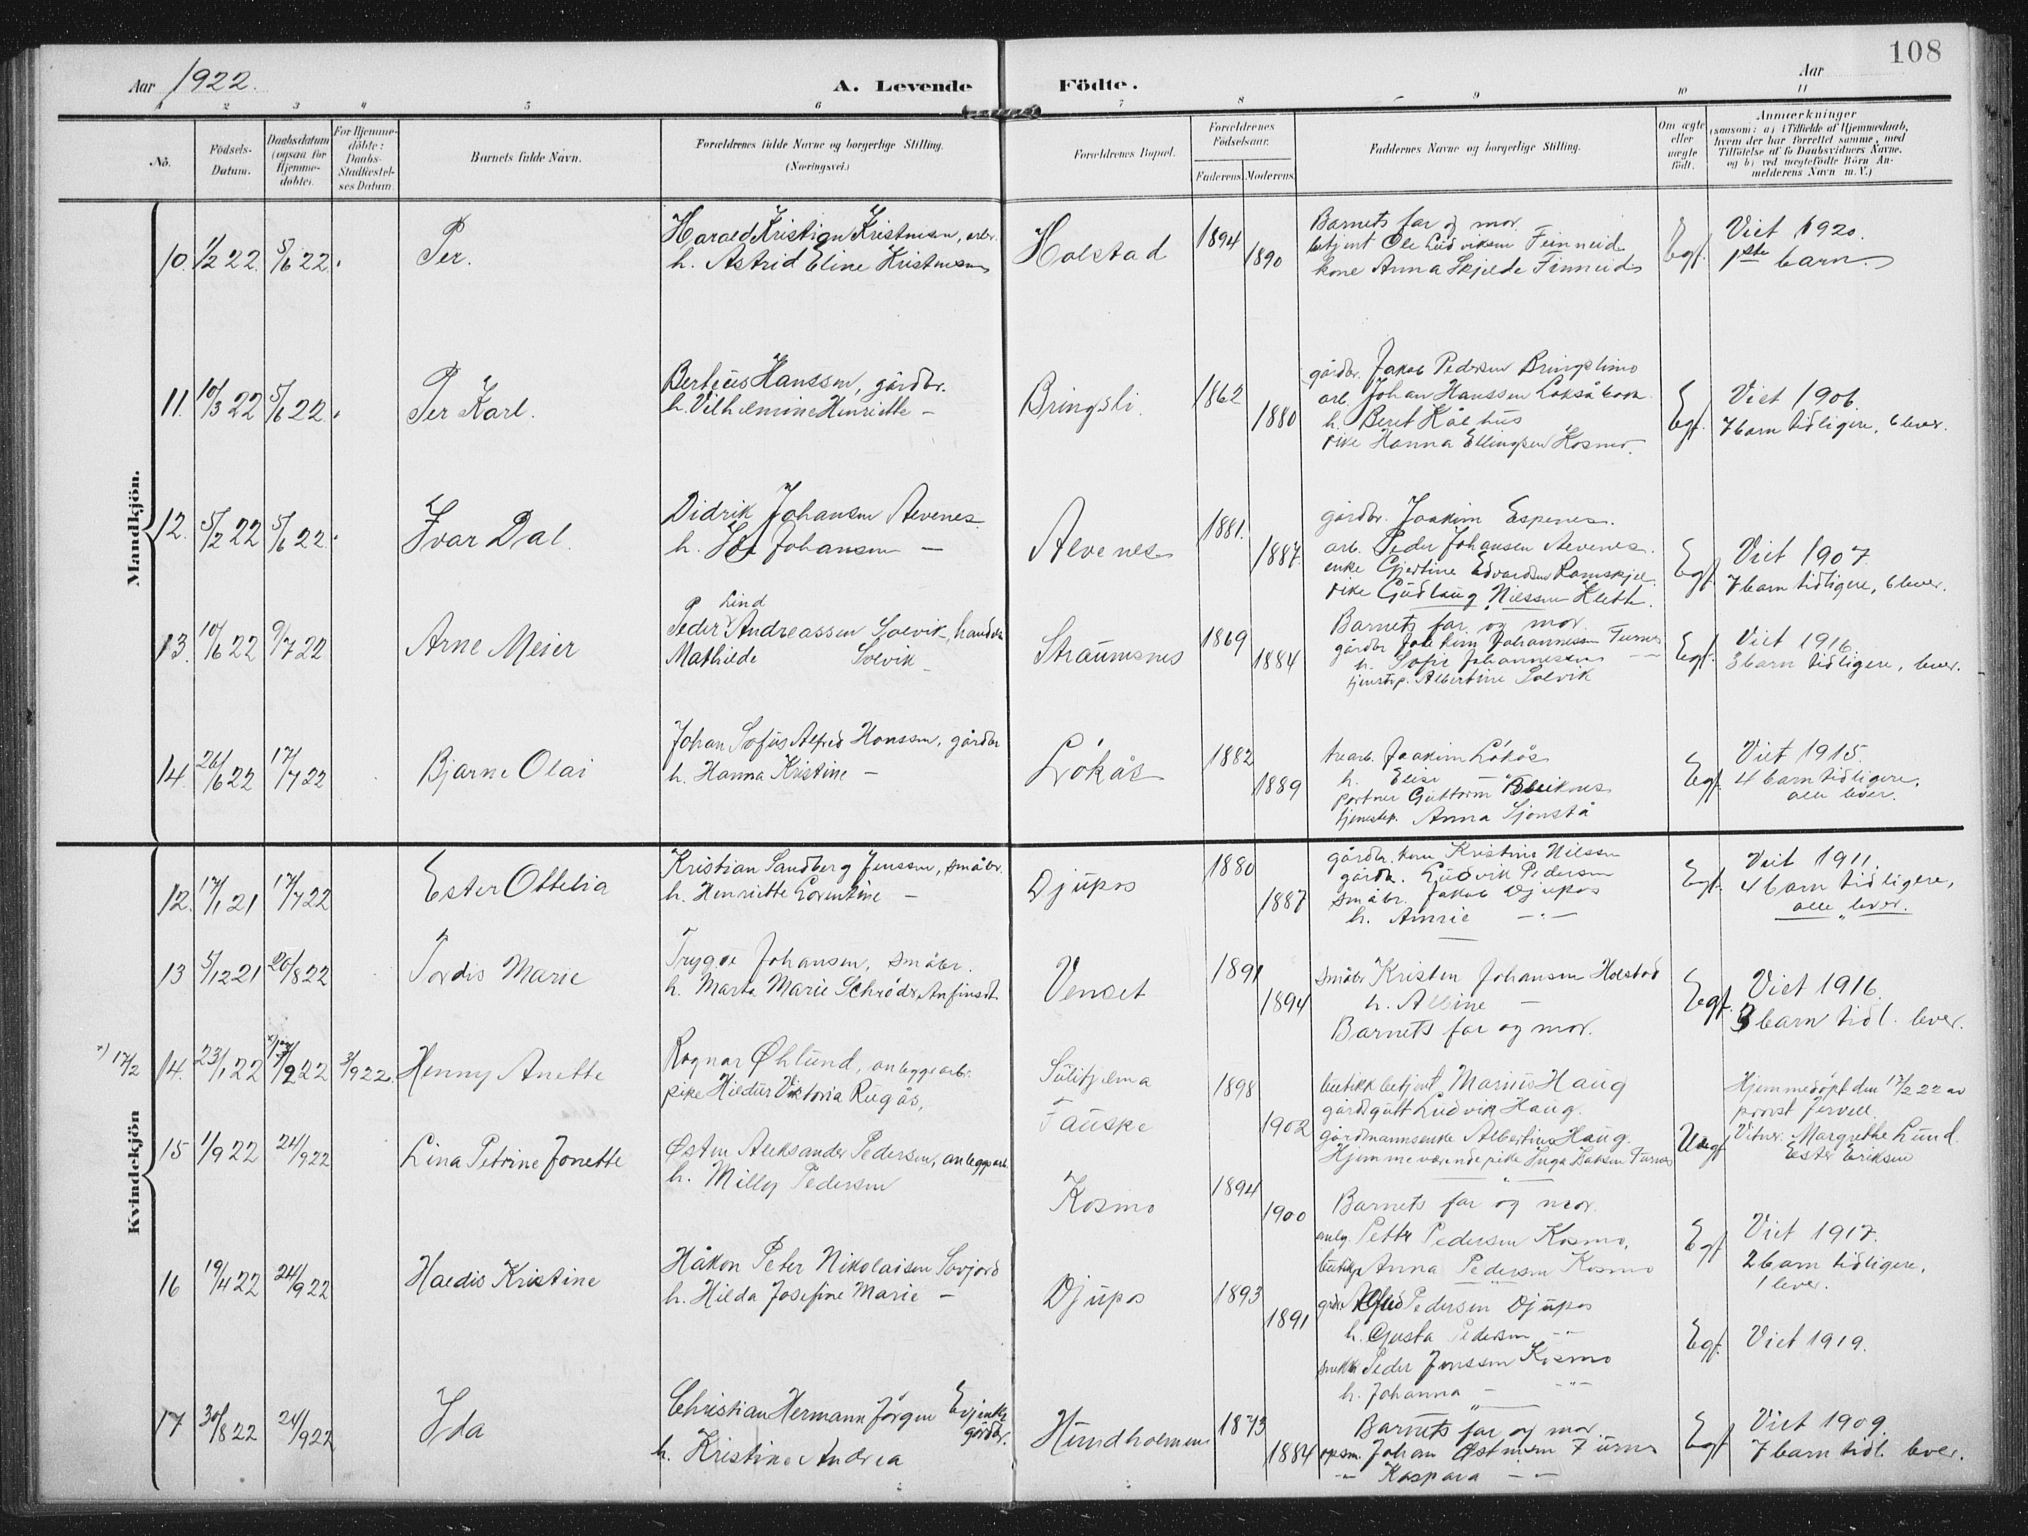 108
Aar 1922.
A. Levende Födte.
Aar
1 2 3 4 5 6 7 8 9 10 11
No.
Födsels-Datum.
Daabsdatum (ogsaa for Hjemme-döbte).
For Hjemme-döbte: Daabs-Stadfæstel-ses Datum.
Barnets fulde Navn.
Forældrenes fulde Navne og borgerlige Stilling. (Næringsvei.)
Forældrenes Bopæl.
Forældrenes Födselsaar.
Faderens. Moderens.
Faddernes Navne og borgerlige Stilling.
Om ægte eller uægte födt.
Anmærkninger
(saasom: a) i Tilfælde af Hjemmedaab, hvem der har forrettet samme, med Tilföielse af to Daabsvidners Navne, og b) ved uægtefödte Börn An-melderens Navn m. V.)
Mandkjön.
10. 1/2 22. 5/6 22.
Per.
Harald Kristian Kristensen, arb.
h. Astrid Eline Kristensen
Holstad
1894
1890
Barnets far og mor.
betjent Ole Ludviksen Finneid
kone Anna Skjelde Finneid
Egf.
Viet 1920.
1ste barn.
11. 10/3 22 5/6 22.
Per Karl.
Berteus Hanssen, gårdbr.
h. Vilhelmine Henriette –
Bringsli.
1862
1880
gårdbr. Jakob Pedersen Bringslimo
arb. Johan Hanssen
h. Beret Kålhus
pike Hanna Ellingsen Kosmo.
Egf.
Viet 1906.
7 barn tidligere, 6 lever.
12. 5/2 22 5/6 22.
Ivar Dal.
Didrik Johansen Alvenes.
h. Johansen –
Alvenes
1881.
1887.
gårdbr. Joakim Espenes.
arb. Peder Johansen Alvenes.
enke Gjertine Edvardsen
pike Gudlaug Nilssen Klette.
Egf.
Viet 1907.
7 barn tidligere, 6 lever.
13. 10/6 22 9/7 22
Arne Meier
P Lind
Peder Andreassen Solvik, handels
Mathilde Solvik –
Straumsnes
1869
1884
Barnets far og mor.
gårdbr Joakim Johannessen Furnes
h. Sofie Johannessen – –
tjenestep. Albertine Solvik
Egf.
Viet 1916.
3 barn tidligere, lever.
14. 26/6 22 17/7 22
Bjarne Olai
Johan Sofus Alfred Hanssen, gårdbr
h. Hanna Kristine –
Lökås
1882
1889
trearb. Joakim Lökås
h. Elise –
portner Guttorm
tjenestep. Anna Sjonstå
Egf.
Viet 1915.
4 barn tidligere,
alle lever.
Kvindekjön
12. 17/1 21 17/7 22
Ester Ottelia
Kristian Sandberg Jenssen, småbr.
h. Henriette Lorentine –
Djupos
1880
1887
gårdbr. kone Kristine Nilssen
gårdbr. Ludvik Pedersen
småbr. Jakob Djupos
h. Amrie – " –
Egf.
Viet 1911.
4 barn tidligere,
alle lever.
13 5/12 21 20/8 22
Tordis Marie
Trygve Johansen, småbr.
h. Marta Marie Schröder Anfinset
Venset
1891
1894
småbr Kristen Johansen Holstad
h. Albine –
Barnets far og mor.
Egf.
Viet 1916.
3 barn tidl. lever.
x) 17/2 14. 23/1 22 3/9 22.
Henny Anette
Ragnar Øhlund, anleggsarb.
pike Hildur Viktoria Rugås.
Sulitjelma
Fauske
1898
1902
butikkbetjent Marius Haug
gårdsgutt Ludvik Haug.
gårdmannsenke Albertine Haug.
Hjemmeværende pike Inga Furnes
Uegf
Hjemmedöpt den 17/2 22 av
prost Jervell.
Vitner: Margrethe Lund.
Ester Eriksen
15 1/9 22 24/9 22
Lina Petrine Jonette
Østen Aleksander Pedersen, anleggsarb.
h. Milly Pedersen
Kosmo
1894
1900
Barnets far og mor.
anlg Petter Pedersen Kosmo,
Anna Pedersen Kosmo
Egf
Viet 1917.
2 barn tidligere,
1 lever.
16 19/4 22 24/9 22
Haldis Kristine
Håkon Peter Nikolaisen Sovjord
h. Hilda Josefine Marie –
Djupos
1893
1891
gårdbr Alfred Pedersen Djupos
h. Gusta Pedersen – " –
snekker Peder Jenssen Kosmo
h. Johanna – – " –
Egf.
Viet 1919.
17 30/8 22 24/9 22
Ida
Christian Hermann Jörgen Evjenth
gårdbr.
h. Kristine Andrea
Hundholmen
1873
1884
Barnets far og mor.
opsm. Johan Østensen Furnes
– " – Kaspara – " –
Egf
Viet 1909.
7 barn tidl. lever.